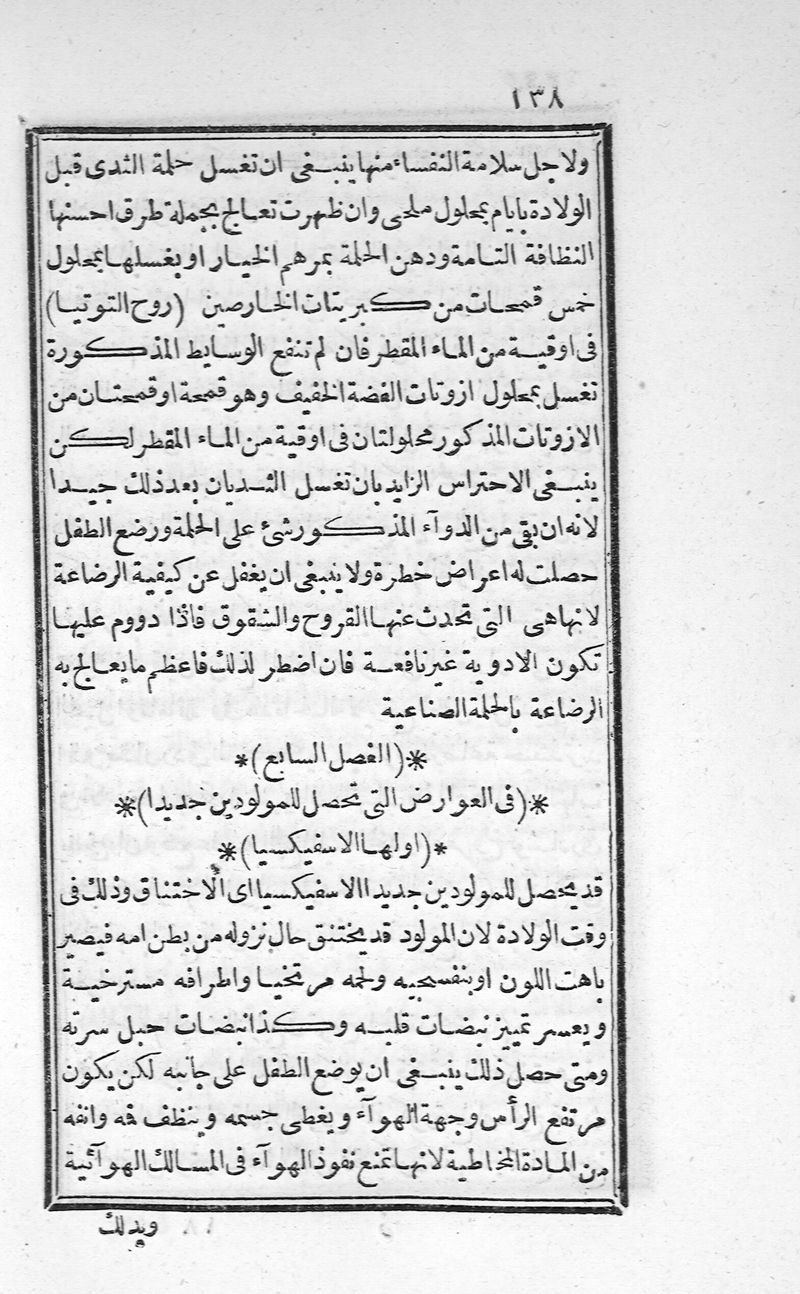 ١٣٨
ولاجل سلامة النفساء منها ينبغى ان تغسل حلمة الثدى قبل
الولادة بايام بمحلول ملحى وان ظهرت تعالج بجملة طرق احسنها
النظافة التامة ودهن الحلمة بمرهم الخيار او بغسلها بمحلول
خمس قمحات من كبريتات الخارصين (روح التوتيا)
فى اوقية من الماء المقطر فان لم تنفع الوسايط المذكورة
تغسل بمحلول ازوتات الفضة الخفيف وهو قمحة او قمحتان من
الازوتات المذكور محلولتان فى اوقية من الماء المقطر لكن
ينبغى الاحتراس الزايد بان تغسل الثديان بعد ذلك جيدا
لانه ان بقى من الدوآء المذكور شئ على الحلمة ورضع الطفل
حصلت له اعراض خطرة ولا ينبغى ان يغفل عن كيفية الرضاعة
لانها هى التى تحدث عنها القروح والشقوق فاذا دووم عليها
تكون الادوية غير نافعة فان اضطر لذلك فاعظم ما يعالج به
الرضاعة بالحلمة الصناعية
*(الفصل السابع)*
*(فى العوارض التى تحصل للمولودين جديدا)*
*(اولها الاسفيكسيا)*
قد يحصل للمولودين جديدا الاسفيكسيا اى الاختناق وذلك فى
وقت الولادة لان المولود قد يختنق حال نزوله من بطن امه فيصير
باهت اللون او بنفسجيه ولحمه مرتخيا واطرافه مسترخية
ويعسر تمييز نبضات قلبه وكذا نبضات حبل سرته
ومتى حصل ذلك ينبغى ان يوضع الطفل على جانبه لكن يكون
مرتفع الرأس وجهة الهوآء ويغطى جسمه وينظف فمه وانفه
من المادة المخاطية لانها تمنع نفوذ الهوآء فى المسالك الهوآئية
ويدلك